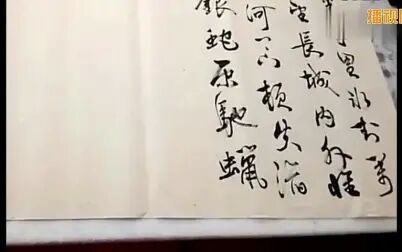 播视
里冰封萬
望長城内外惟
河上下頓失滔
銀蛇原馳蠟